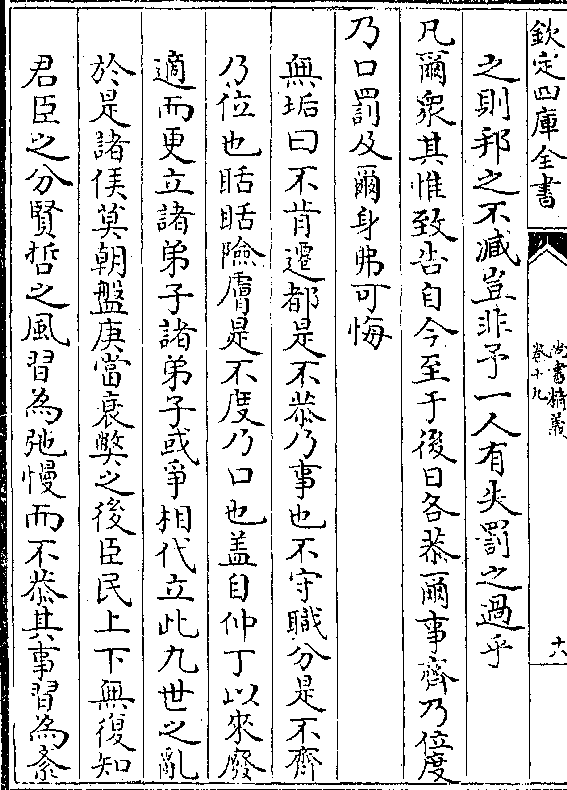 欽定四庫全書
尚書精義
卷十九
十六
之則邦之不臧豈非予一人有失罰之過乎
凡爾衆其惟致告自今至于後日各恭爾事齊乃位度
乃口罰及爾身弗可悔
無垢曰不肯遷都是不恭乃事也不守職分是不齊
乃位也聒聒險膚是不度乃口也盖自仲丁以來廢
適而更立諸弟子諸弟子或爭相代立此九世之亂
於是諸侯莫朝盤庚當衰弊之後臣民上下無復知
君臣之分賢哲之風習為弛慢而不恭其事習為紊